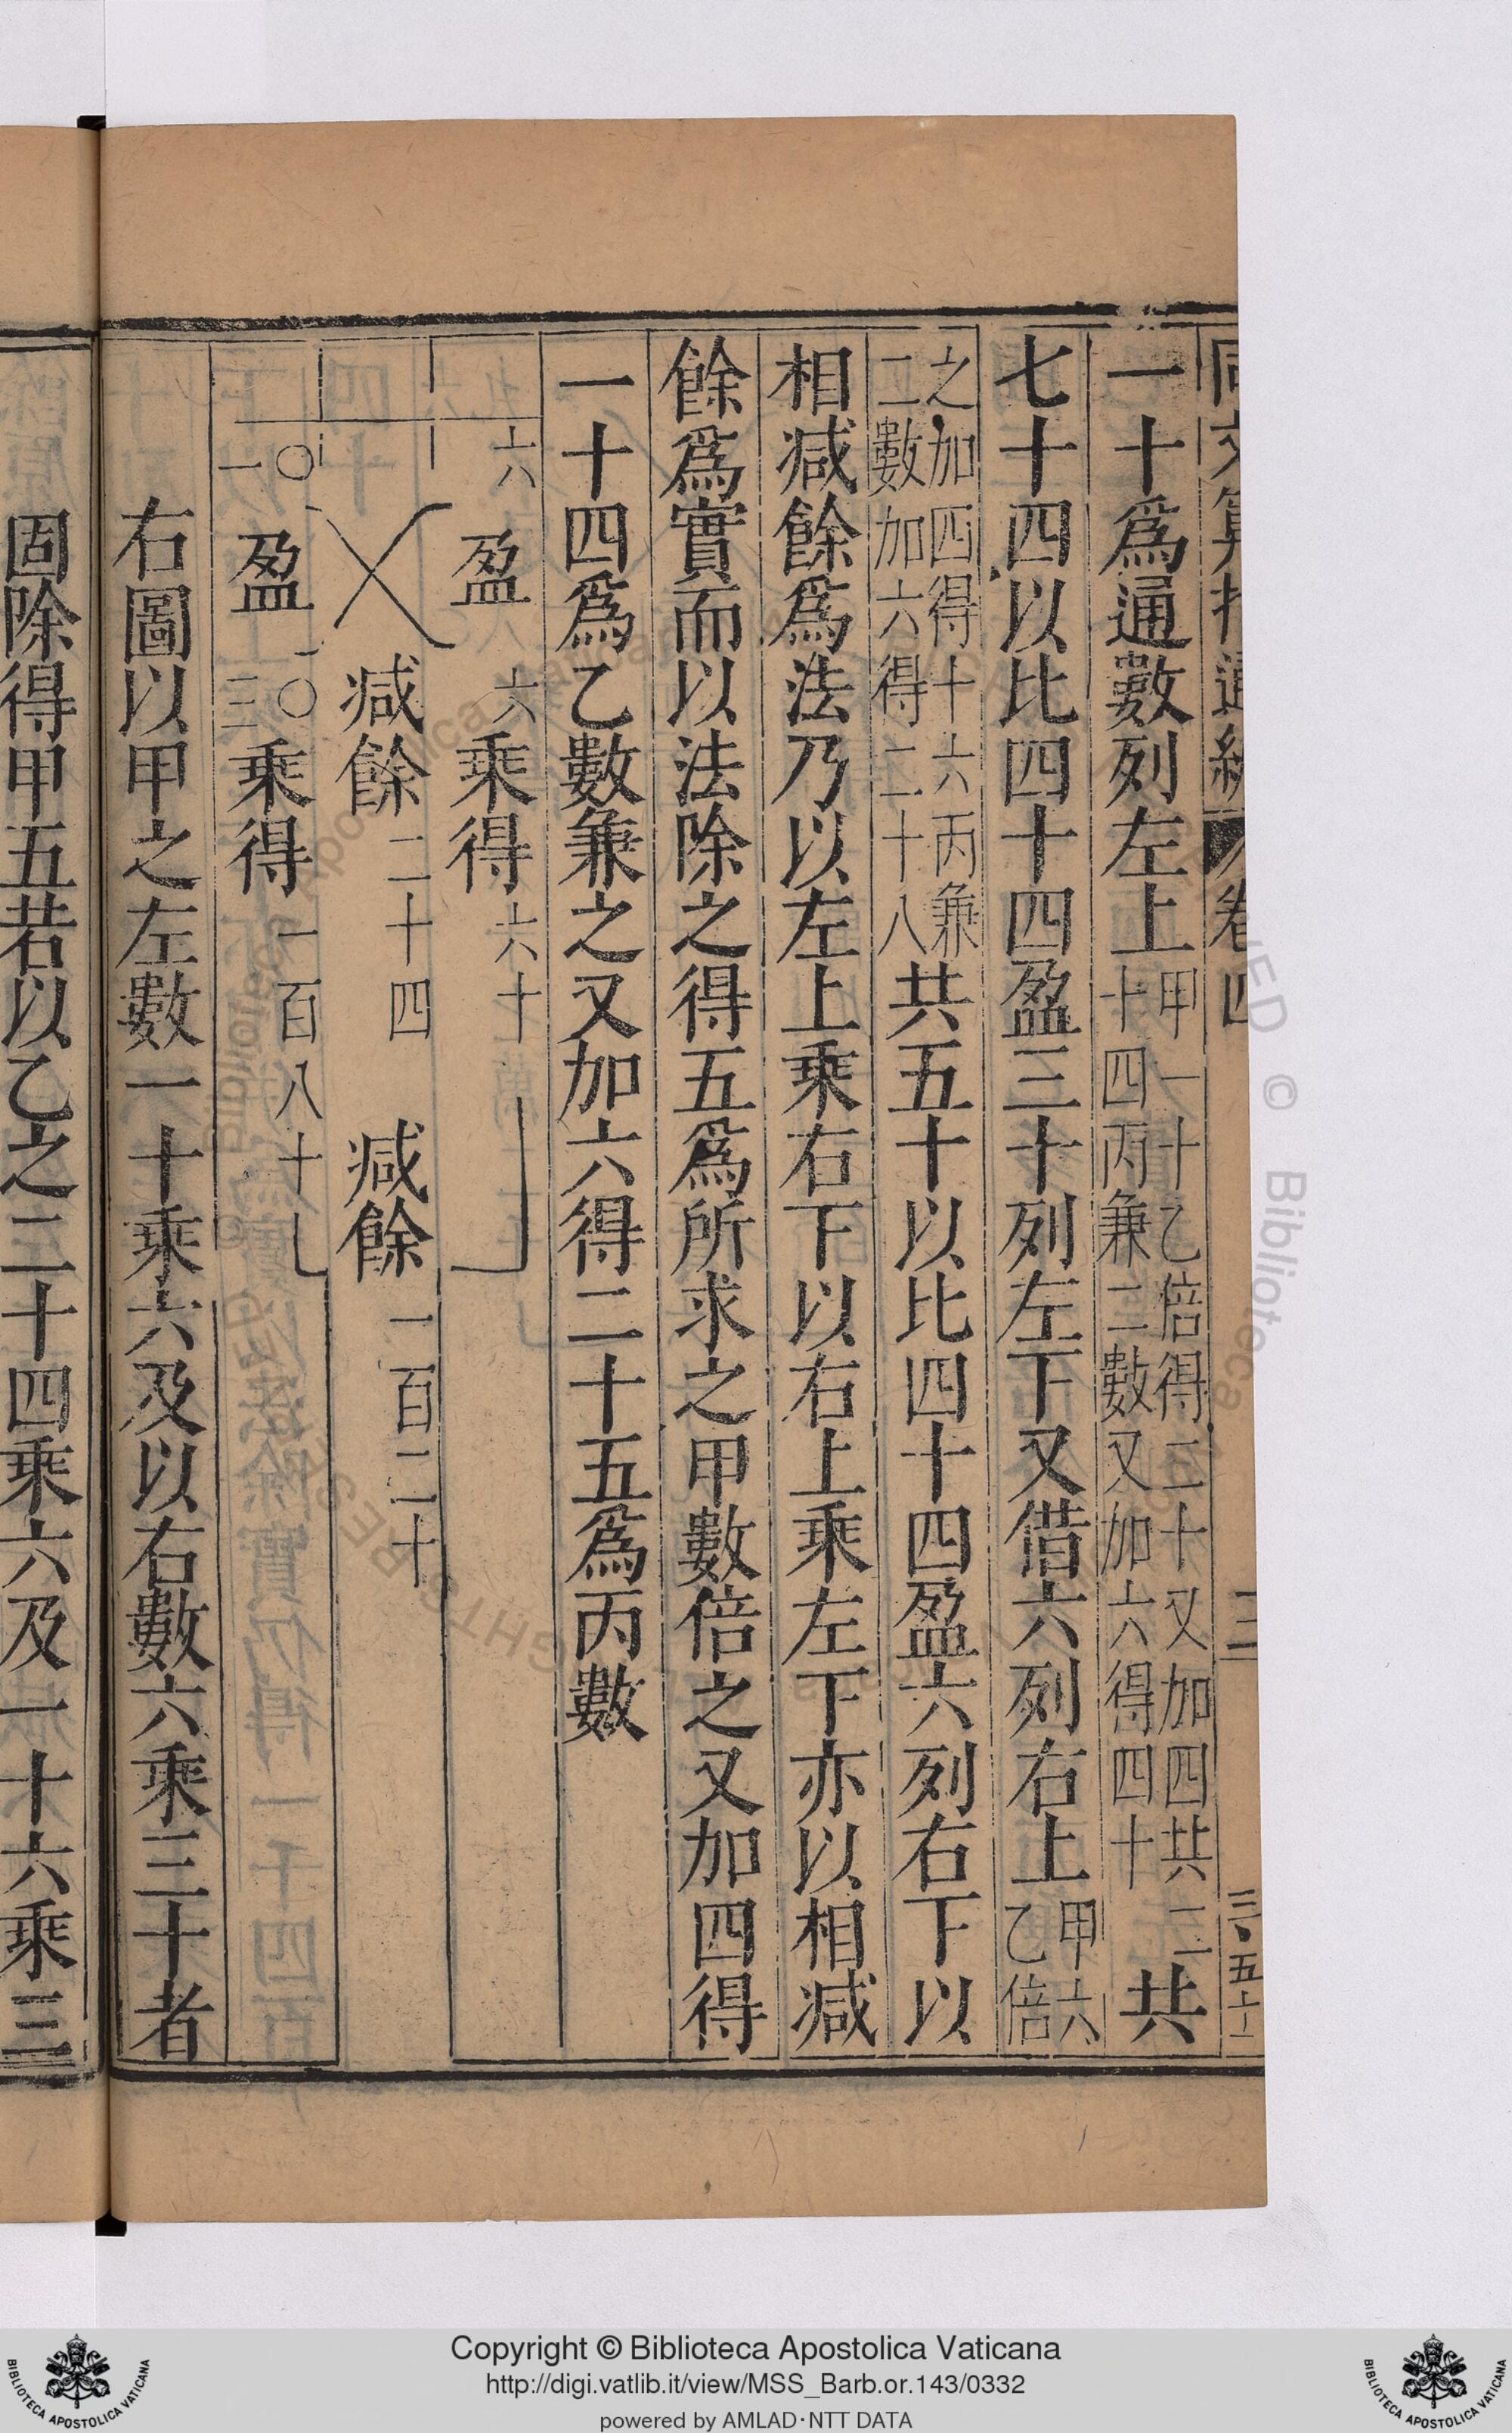 同文算指通編 卷四 三
一十爲通數列左上
甲一十乙倍得二十又加四共二
十四丙兼二數又加六得四十
共
七十四以比四十四盈三十列左下又借六列右上
甲六
乙倍
之加四得十六丙兼
二數加六得二十八
共五十以比四十四盈六列右下以
相减餘爲法乃以左上乘右下以右上乘左下亦以相减
餘爲實而以法除之得五爲所求之甲數倍之又加四得
一十四爲乙數兼之又加六得二十五爲丙數
六 盈 六 乘得 六十
减餘 二十四 减餘 一百二十
一〇 盈 三〇 乘得 一百八十
右圖以甲之左數一十乘六及以右數六乘三十者
固除得甲五若以乙之二十四乘六及一十六乘三
Copyright © Biblioteca Apostolica Vaticana
http://digi.vatlib.it/view/MSS_Barb.or.143/0332
powered by AMLAD·NTT DATA
BIBLIOTECA APOSTOLICA VATICANA
BIBLIOTECA APOSTOLICA VATICANA